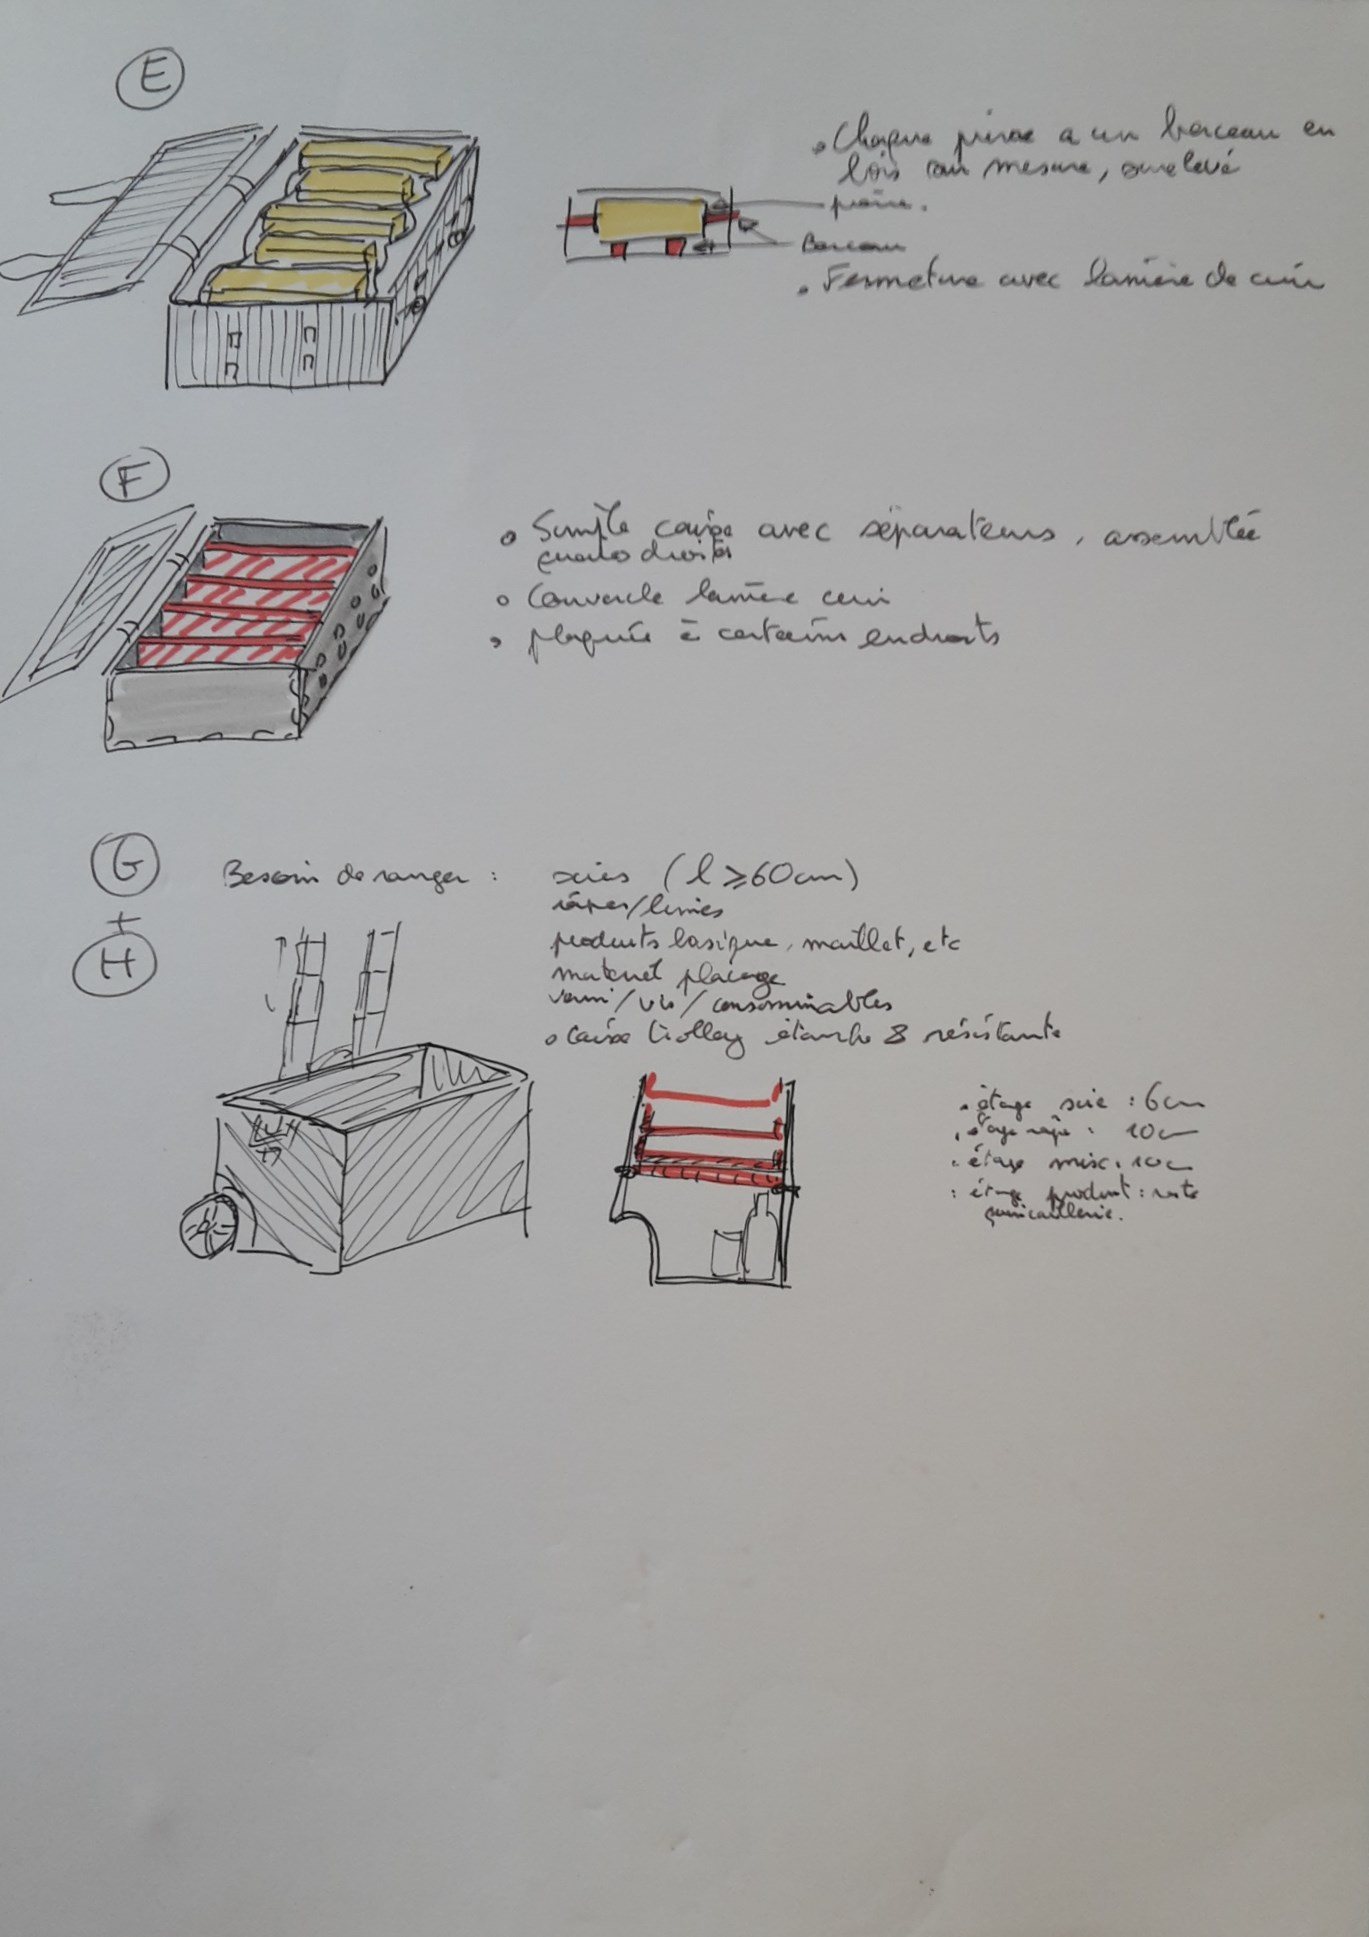 E
• Chaque pièce a un berceau en
bois sur mesure, surelevé
pièce.
Berceau
• Fermeture avec lanière de cuir
F
o Simple caisse avec séparateurs, assemblée
queues droites
o Couvercle lanière cuir
• plaquée à certains endroits
G
+
H
Besoin de ranger : scies (l ⩾ 60cm)
râpes/limes
produits basique, maillet, etc
materiel placage
verni/vis/consommables
o Caisse trolley étanche & résistante
• étage scie : 6cm
• étage râpe : 10cm
• étage misc : 10cm
• étage produit : reste
quincaillerie.